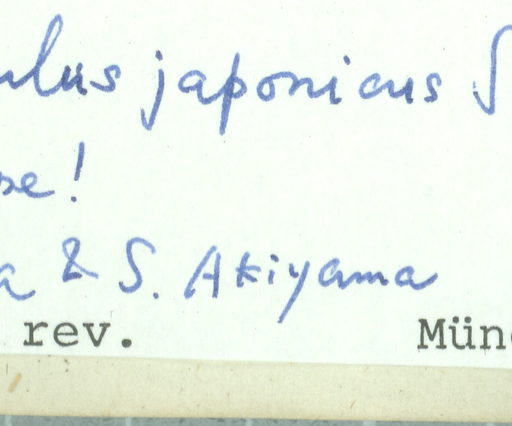 ulus japonicus S
se!
a & S. Akiyama
rev. Mün